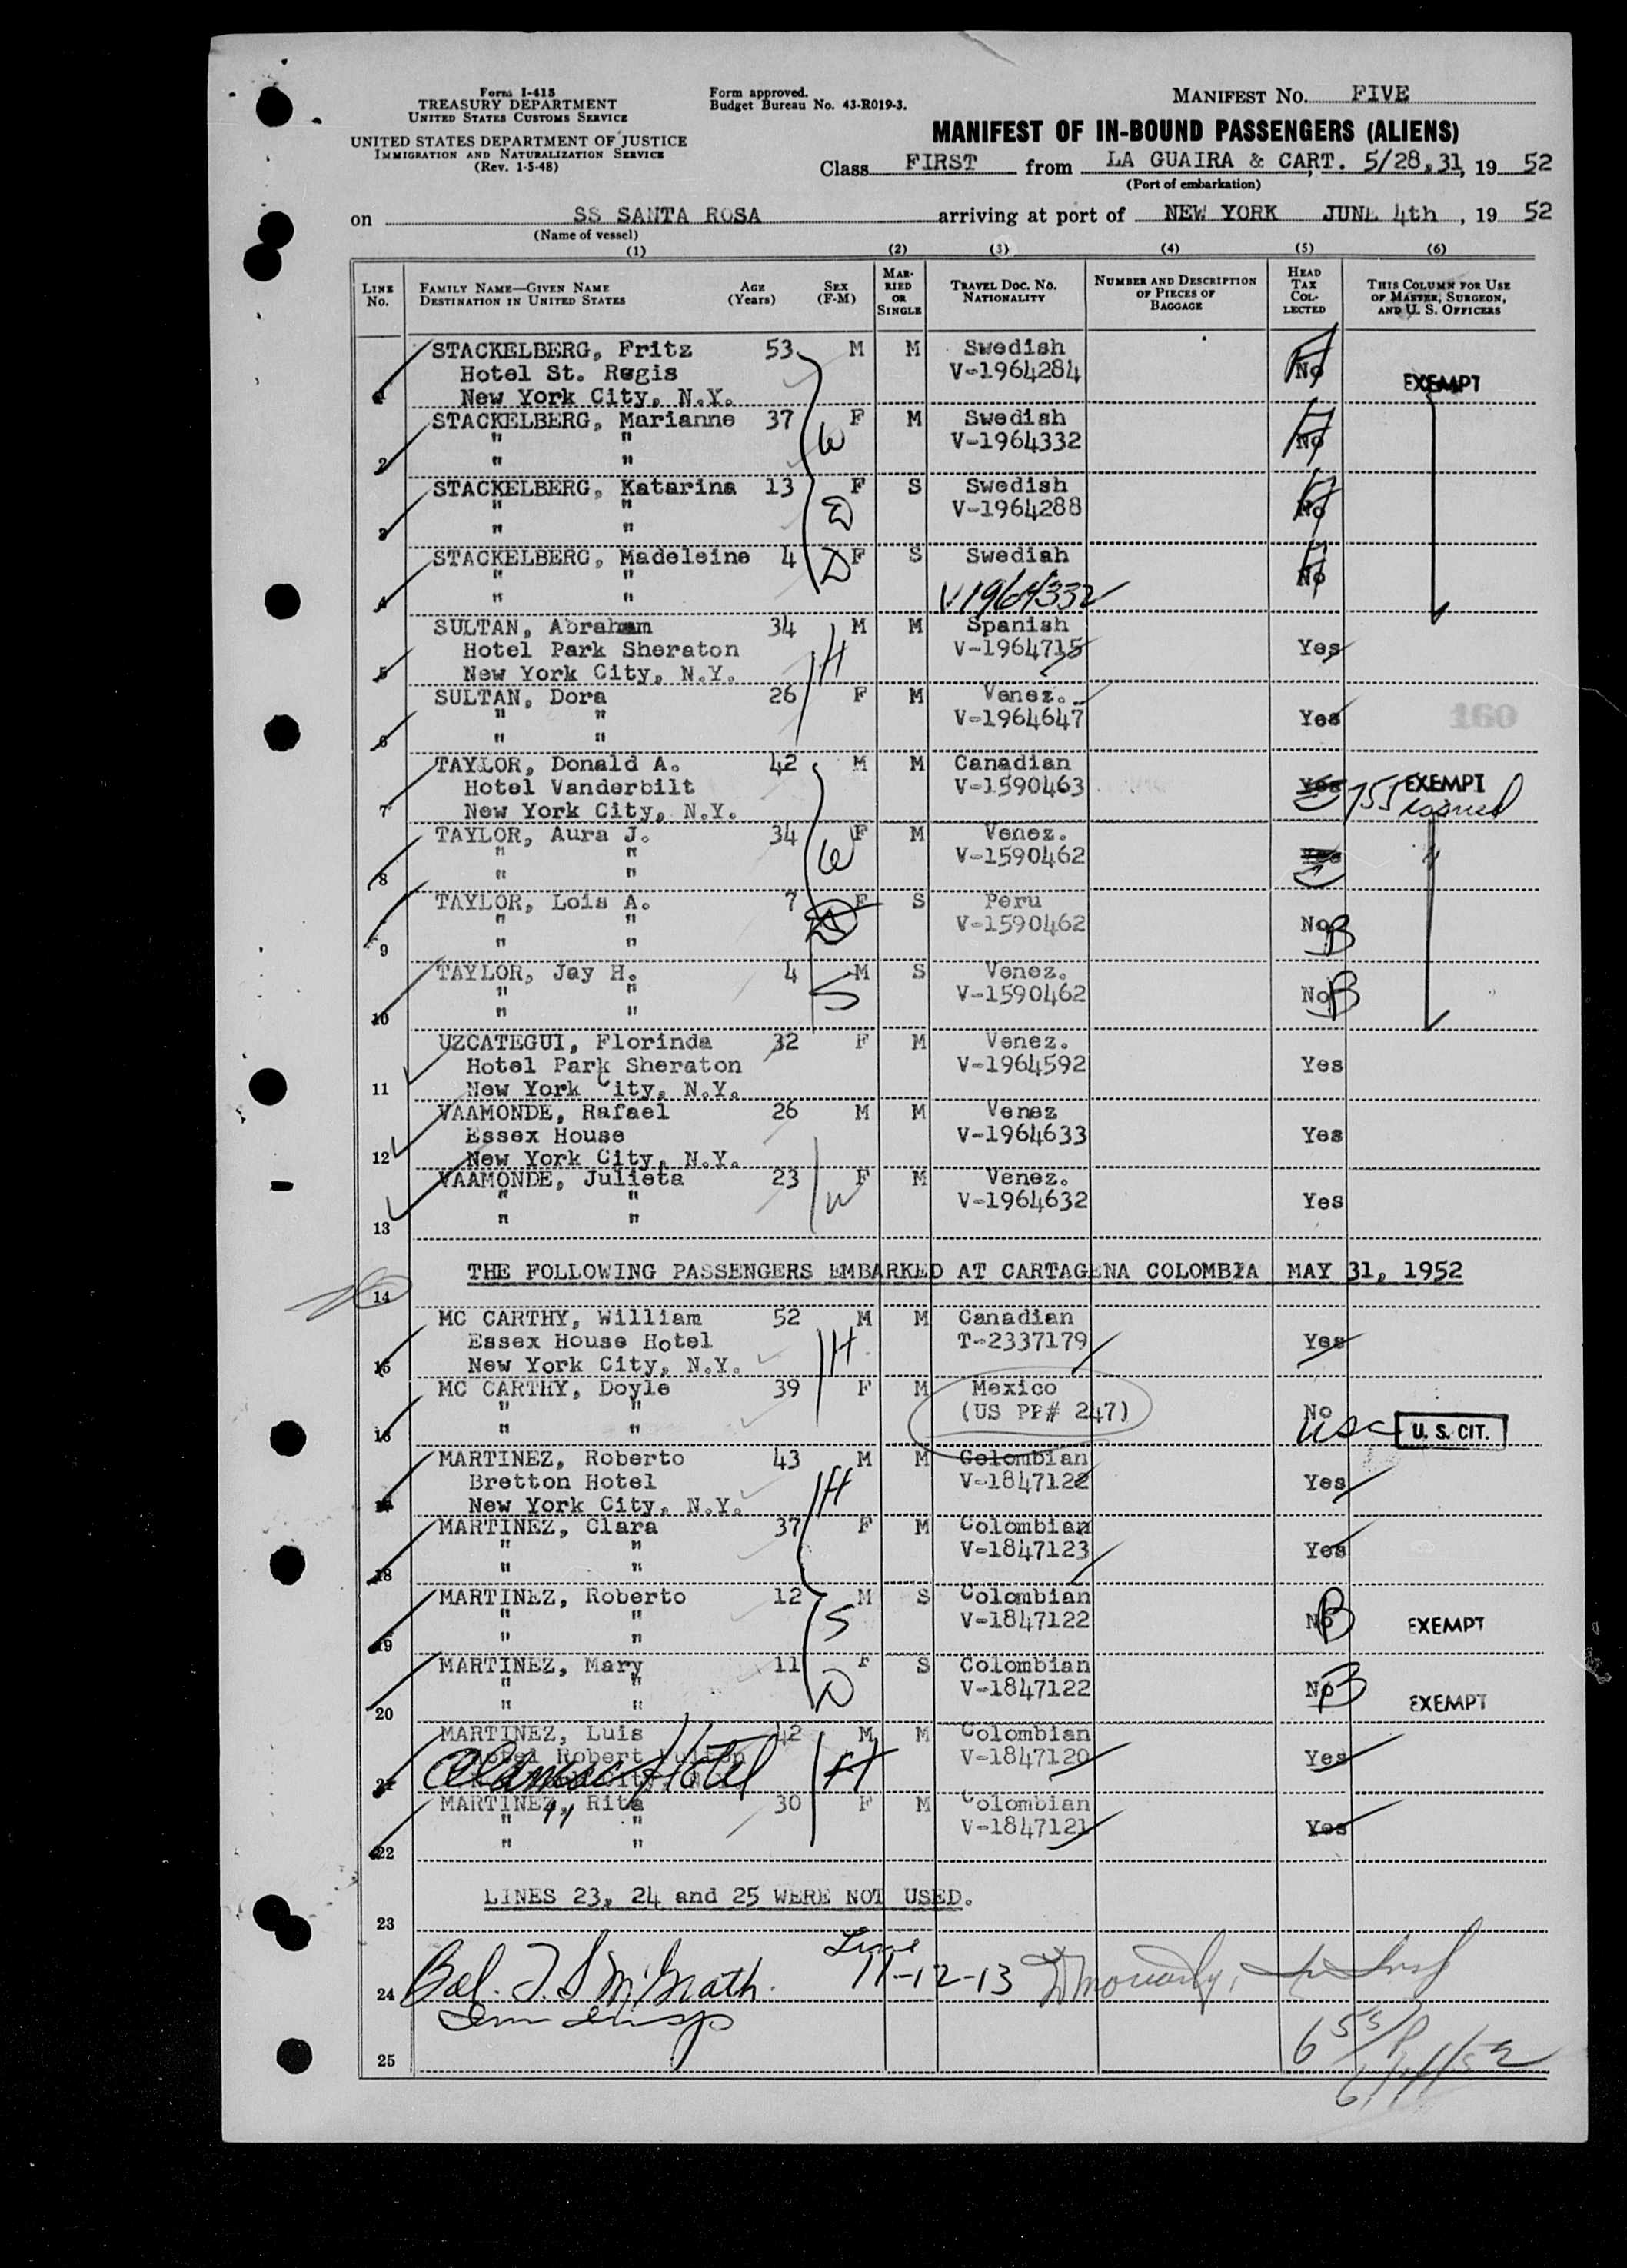 Form I-415
TREASURY DEPARTMENT
UNITED STATES CUSTOMS SERVICE
UNITED STATES DEPARTMENT OF JUSTICE
IMMIGRATION AND NATURALIZATION SERVICE
(Rev. 1-5-48)
Form approved.
Budget Bureau No. 43-R019-3.
MANIFEST NO. FIVE
MANIFEST OF IN-BOUND PASSENGERS (ALIENS)
Class FIRST from LA GUAIRA & CART. 5/28,31, 19 52
(Port of embarkation)
on SS SANTA ROSA arriving at port of NEW YORK JUNE 4th, 19 52
(Name of vessel)
(1) (2) (3) (4) (5) (6)
LINE NO. FAMILY NAME—GIVEN NAME DESTINATION IN UNITED STATES AGE (Years) SEX (F-M) MARRIED OR SINGLE TRAVEL DOC. NO. NATIONALITY NUMBER AND DESCRIPTION OF PIECES OF BAGGAGE HEAD TAX COLLECTED THIS COLUMN FOR USE OF MASTER, SURGEON, AND U. S. OFFICERS
STACKELBERG, Fritz 53 M M Swedish
Hotel St. Regis V-1964284 No EXEMPT
1 New York City, N.Y.
STACKELBERG, Marianne 37 W F M Swedish
" " V-1964332 No
2 " "
STACKELBERG, Katarina 13 F S Swedish
" " D V-1964288 No
3 " "
STACKELBERG, Madeleine 4 D F S Swedish
" " No
4 " " V1964332
SULTAN, Abraham 34 M M Spanish
Hotel Park Sheraton H V-1964715 Yes
5 New York City, N.Y.
SULTAN, Dora 26 F M Venez.
" " V-1964647 Yes 160
6 " "
TAYLOR, Donald A. 42 M M Canadian
Hotel Vanderbilt V-1590463 Yes EXEMPT
7 New York City, N.Y.
TAYLOR, Aura J. 34 W F M Venez.
" " V-1590462 Yes "
8 " "
TAYLOR, Lois A. 7 F S Peru
" " D V-1590462 No B
9 " "
TAYLOR, Jay H. 4 M S Venez.
" " S V-1590462 No B
10 " "
UZCATEGUI, Florinda 32 F M Venez.
Hotel Park Sheraton V-1964592 Yes
11 New York City, N.Y.
VAAMONDE, Rafael 26 M M Venez
Essex House V-1964633 Yes
12 New York City, N.Y.
VAAMONDE, Julieta 23 F M Venez.
" " W V-1964632 Yes
13 " "
THE FOLLOWING PASSENGERS EMBARKED AT CARTAGENA COLOMBIA MAY 31, 1952
14
MC CARTHY, William 52 M M Canadian
Essex House Hotel H T-2337179 Yes
15 New York City, N.Y.
MC CARTHY, Doyle 39 F M Mexico
" " (US PP# 247) No
16 " " USC U. S. CIT.
MARTINEZ, Roberto 43 M M Colombian
Bretton Hotel H V-1847122 Yes
17 New York City, N.Y.
MARTINEZ, Clara 37 F M Colombian
" " V-1847123 Yes
18 " "
MARTINEZ, Roberto 12 M S Colombian
" " S V-1847122 No B EXEMPT
19 " "
MARTINEZ, Mary 11 F S Colombian
" " D V-1847122 No B EXEMPT
20 " "
MARTINEZ, Luis 42 M M Colombian
Hotel Robert Fulton H V-1847120 Yes
21 Hotel
MARTINEZ, Rita 30 F M Colombian
" " V-1847121 Yes
22 " "
LINES 23, 24 and 25 WERE NOT USED.
23
Line
24 Bal. J. S McGrath. 11-12-13
Imm Insp
25 6/4/52